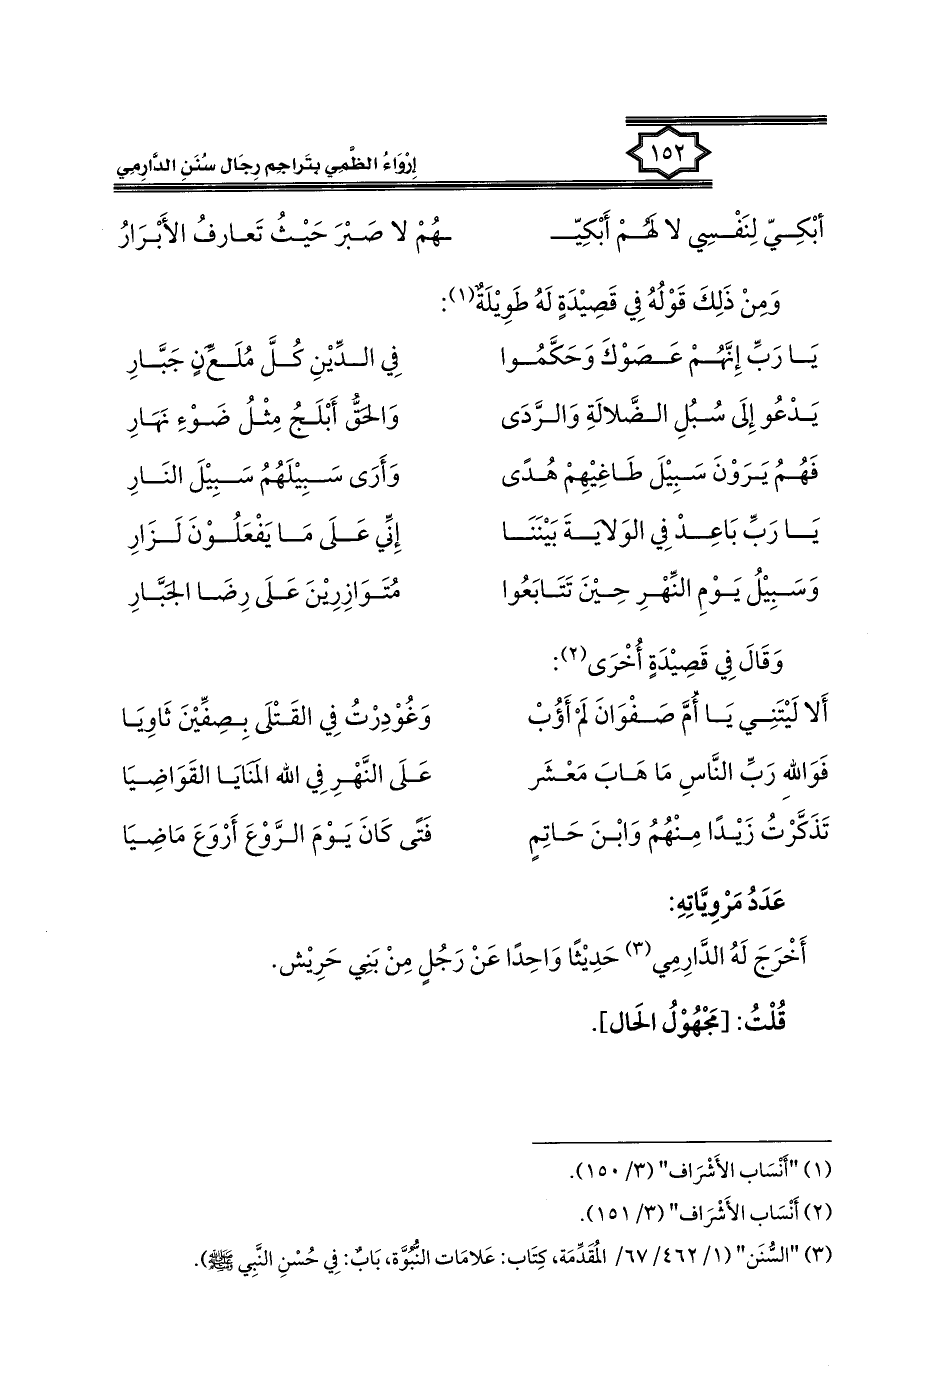 ١٥٢
إِرْوَاءُ الظَّمِي بِتَراجِم رِجَال سُنَنِ الدَّارِمِي
أَبْكِــيِّ لِنَفْــسِي لا لَهُــمْ أَبْكِيّـــ ـهُمْ لا صَبْرَ حَيْـثُ تَعـارفُ الأَبْـرَارُ
وَمِنْ ذَلِكَ قَوْلُهُ فِي قَصِيْدَةٍ لَهُ طَوِيْلَةٌ(١):
يَـا رَبِّ إِنَّهُـمْ عَـصَوْكَ وَحَكَّمُـوا فِي الـدِّيْنِ كُـلَّ مُلَعَّـنٍ جَبَّـارِ
يَـدْعُو إِلَى سُـبُلِ الـضَّلالَةِ وَالـرَّدَى وَالحَقُّ أَبْلَـجُ مِثْـلُ ضَـوْءِ نَهَـارِ
فَهُـمُ يَـرَوْنَ سَـبِيْلَ طَـاغِيْهِمْ هُـدًى وَأَرَى سَـبِيْلَهُمُ سَـبِيْلَ النَـارِ
يَـا رَبِّ بَاعِـدْ فِي الوَلايَـةَ بَيْنَنَـا إِنِّي عَـلَى مَـا يَفْعَلُـوْنَ لَـزَارِ
وَسَـبِيْلُ يَـوْمِ النَّهْـرِ حِـيْنَ تَتَـابَعُوا مُتَـوَازِرِيْنَ عَـلَى رِضَـا الجَبَّـارِ
وَقَالَ فِي قَصِيْدَةٍ أُخْرَى(٢):
أَلا لَيْتَنِـي يَـا أُمَّ صَـفْوَانَ لَمْ أَؤُبْ وَغُوْدِرْتُ فِي القَتْلَى بِـصِفِّيْنَ ثَاوِيَـا
فَوَالله رَبِّ النَّاسِ مَا هَـابَ مَعْـشَرٌ عَـلَى النَّهْـرِ فِي الله المَنَايَـا القَوَاضِيَـا
تَذَكَّرْتُ زَيْـدًا مِـنْهُمُ وَابْـنَ حَـاتِمٍ فَتًى كَانَ يَـوْمَ الـرَّوْعَ أَرْوَعَ مَاضِيَـا
عَدَدُ مَرْوِيَّاتِهِ:
أَخْرَجَ لَهُ الدَّارِمِي(٣) حَدِيْثًا وَاحِدًا عَنْ رَجُلٍ مِنْ بَنِي حَرِيْش.
قُلْتُ: [مَجْهُوْلُ الحَال].
(١) "أَنْسَاب الأَشْرَاف" (٣/ ١٥٠).
(٢) أَنْسَاب الأَشْرَاف" (٣/ ١٥١).
(٣) "السُّنَن" (١/ ٤٦٢/ ٦٧/ المُقَدِّمَة، كِتَاب: عَلامَات النُّبُوَّة، بَابٌ: فِي حُسْنِ النَّبِي ﷺ).